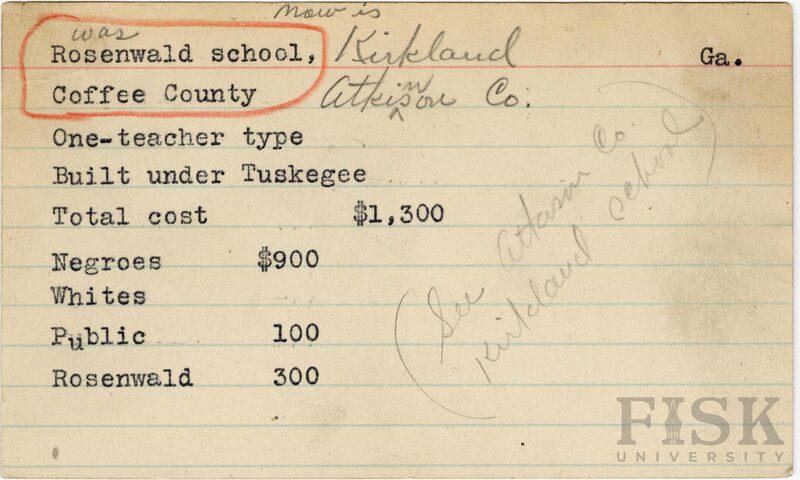 now is
was
Rosenwald school, Kirkland Ga.
Coffee County Atkinson Co.
One-teacher type
Built under Tuskegee
Total cost $1,300
Negroes $900
Whites
Public 100
Rosenwald 300
(See Atkison Co.
Kirkland school)
FISK
UNIVERSITY